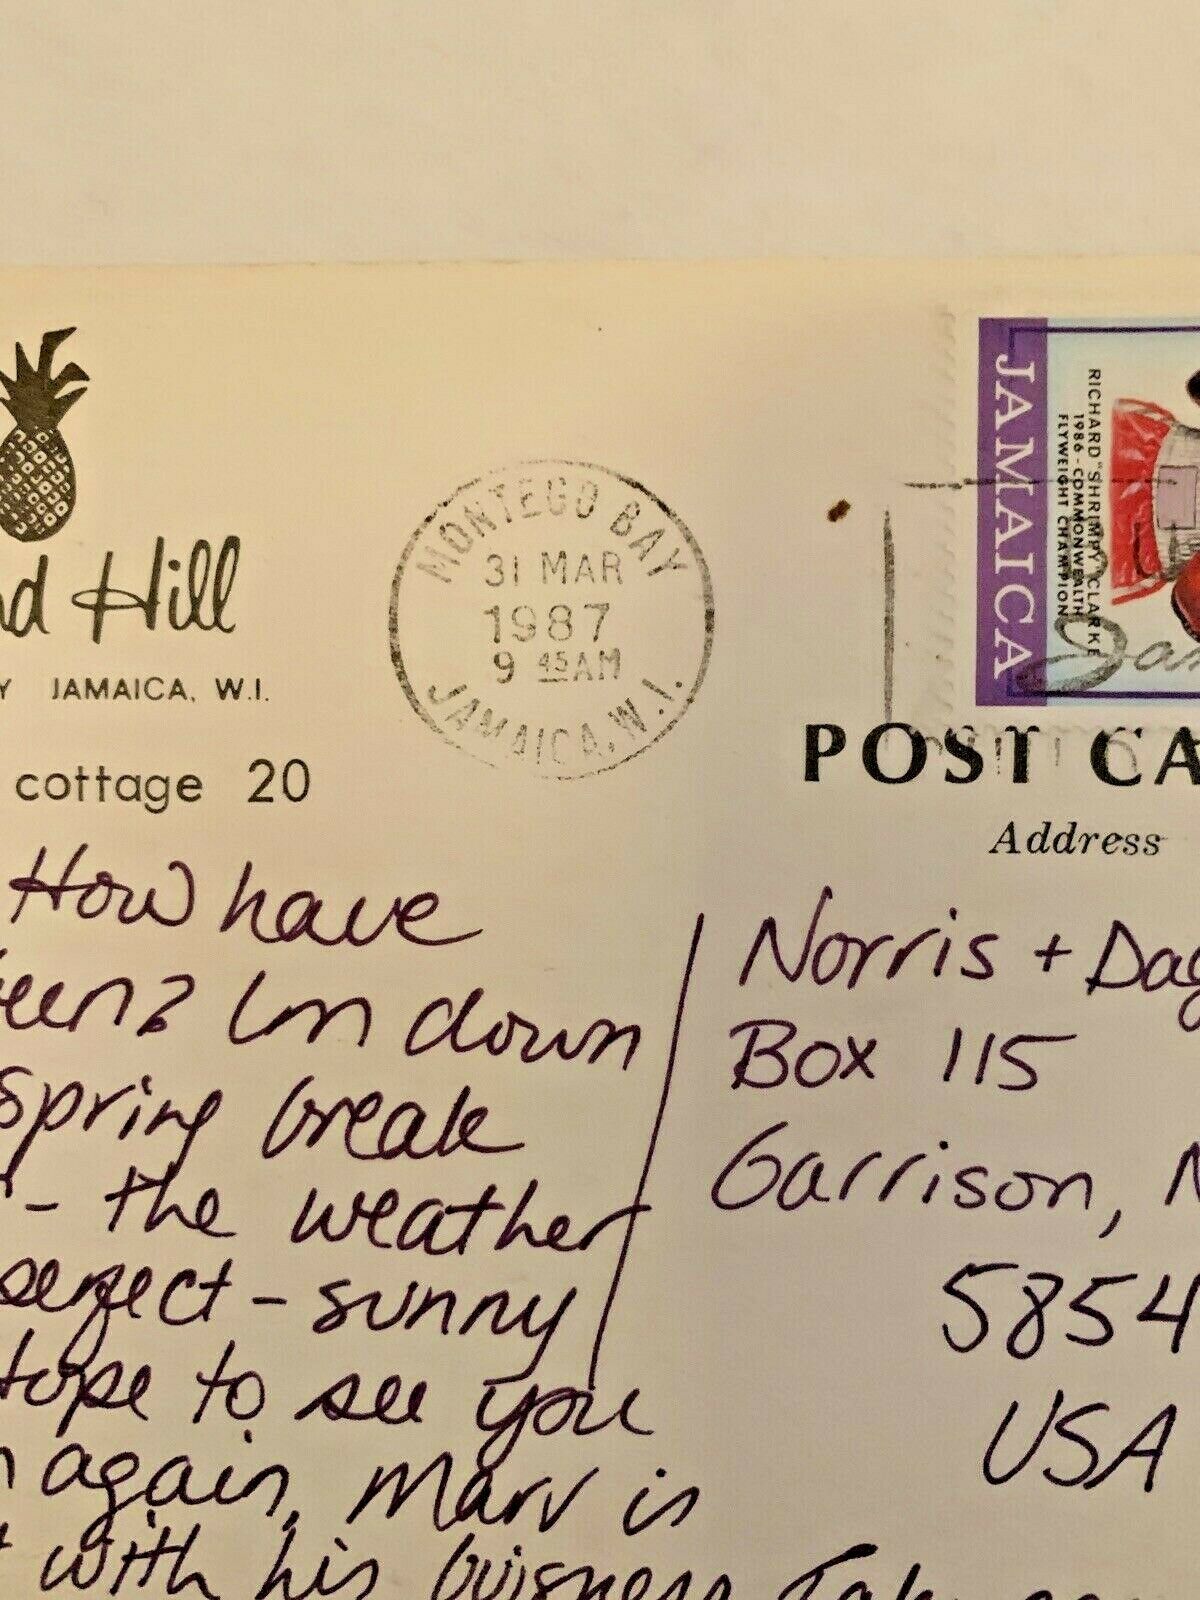 Hill
JAMAICA, W.I.
cottage 20
MONTEGO BAY
31 MAR
1987
9 45AM
JAMAICA, W.I.
JAMAICA
RICHARD "SHRIMPY" CLARKE
1986 - COMMONWEALTH
FLYWEIGHT CHAMPION
POST CA
Address
How have
een? Im down
spring break
- the weather
perfect - sunny
Hope to see you
again, Marv is
with his buisness Take
Norris + Dag
Box 115
Garrison, N
5854
USA